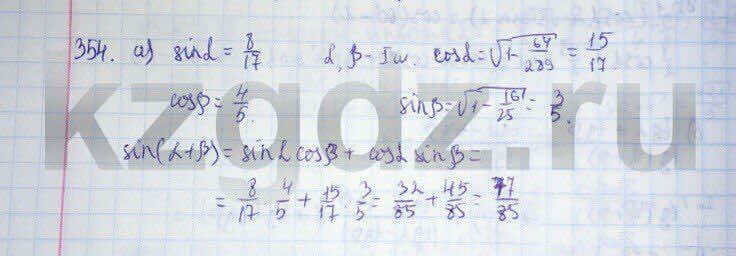 354. а) sinα = 8/17   α, β - I ш.   cosα = √(1 - 64/289) = 15/17
cosβ = 4/5   sinβ = √(1 - 16/25) = 3/5.
sin(α+β) = sinα cosβ + cosα sinβ =
= 8/17 · 4/5 + 15/17 · 3/5 = 32/85 + 45/85 = 77/85
kzgdz.ru